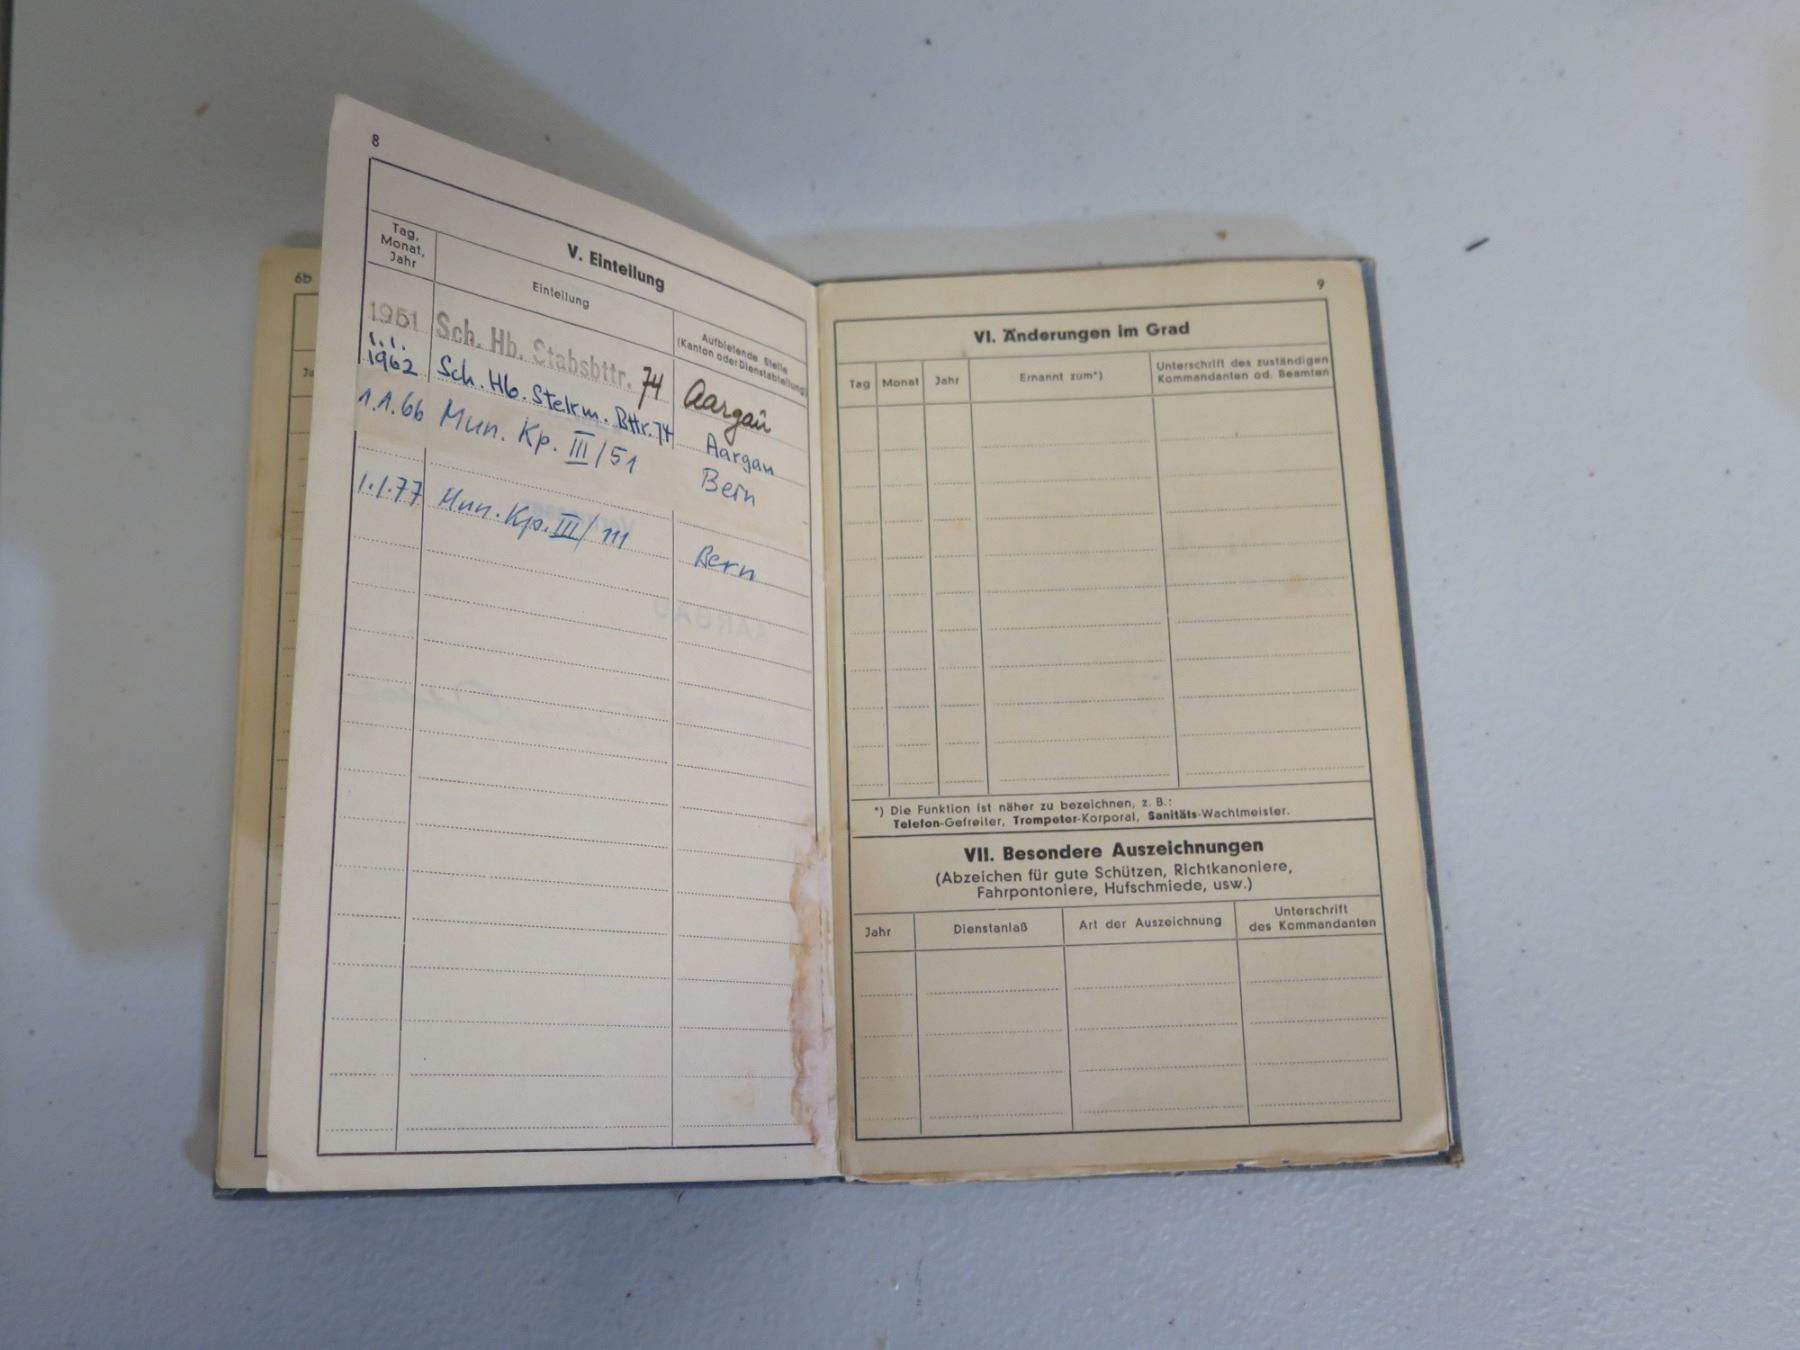 8
V. Einteilung
Tag, Monat, Jahr
Einteilung
Aufbietende Stelle
(Kanton oder Dienstabteilung)
1951 Sch. Hb. Stabsbttr. 74 Aargau
1.1. 1962 Sch. Hb. Stelrm. Bttr. 74 Aargau
1.1.66 Mun. Kp. III/51 Bern
1.1.77 Mun. Kp. III/111 Bern
6b
9
VI. Änderungen im Grad
Tag Monat Jahr Ernannt zum*) Unterschrift des zuständigen
Kommandanten od. Beamten
*) Die Funktion ist näher zu bezeichnen, z. B.:
Telefon-Gefreiter, Trompeter-Korporal, Sanitäts-Wachtmeister.
VII. Besondere Auszeichnungen
(Abzeichen für gute Schützen, Richtkanoniere,
Fahrpontoniere, Hufschmiede, usw.)
Jahr Dienstanlaß Art der Auszeichnung Unterschrift
des Kommandanten